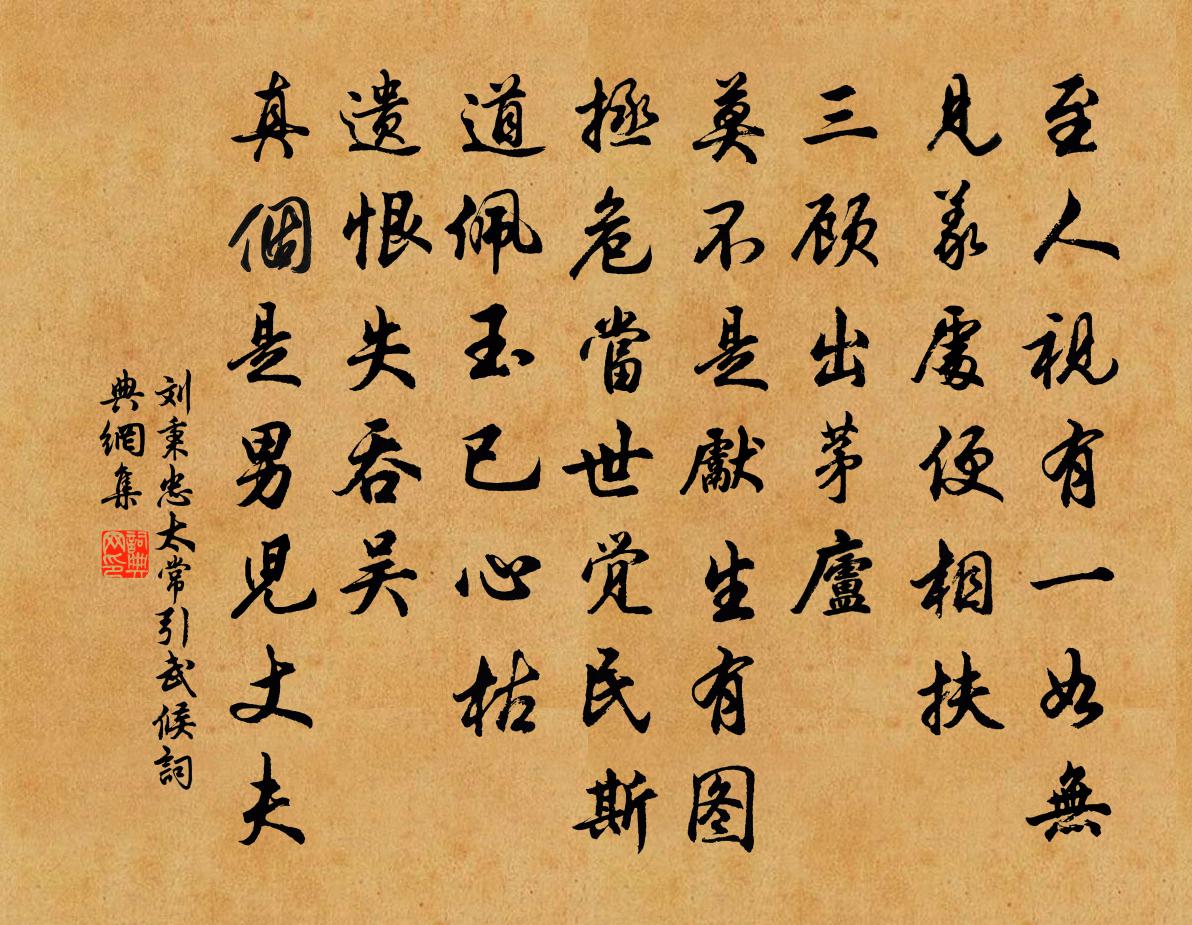 至人視有一如無
見義處便相扶
三顾出茅廬
莫不是獻生有图
拯危當世觉民斯
道佩玉已心枯
遗恨失吞吴
真個是男兒丈夫
刘秉忠太常引武候詞
典網集
詞典
网印